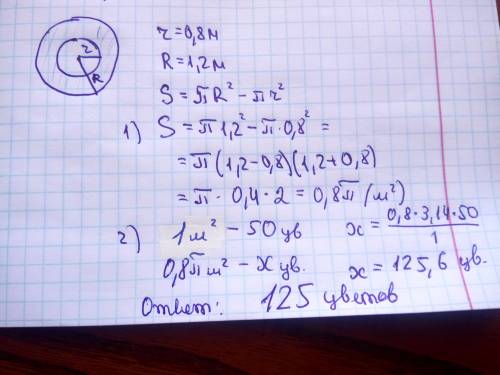 r
R
r=0,8м
R=1,2м
S=πR²-πr²
1) S=π1,2²-π·0,8²=
=π(1,2-0,8)(1,2+0,8)
=π·0,4·2=0,8π(м²)
2) 1м² - 50 цв x=0,8·3,14·50/1
0,8πм² - x цв. x=125,6 цв.
Ответ: 125 цветов